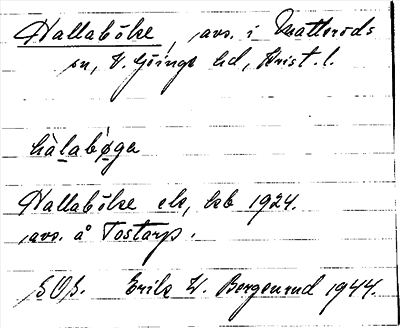 Hallaböke, avs. i Matteröds
sn, V. Göinge hd, Krist. l.
hàlabø̀ga
Hallaböke ek, hkb 1924.
avs. å Tostarp.
SOK. Erik W. Bergenrud 1944.